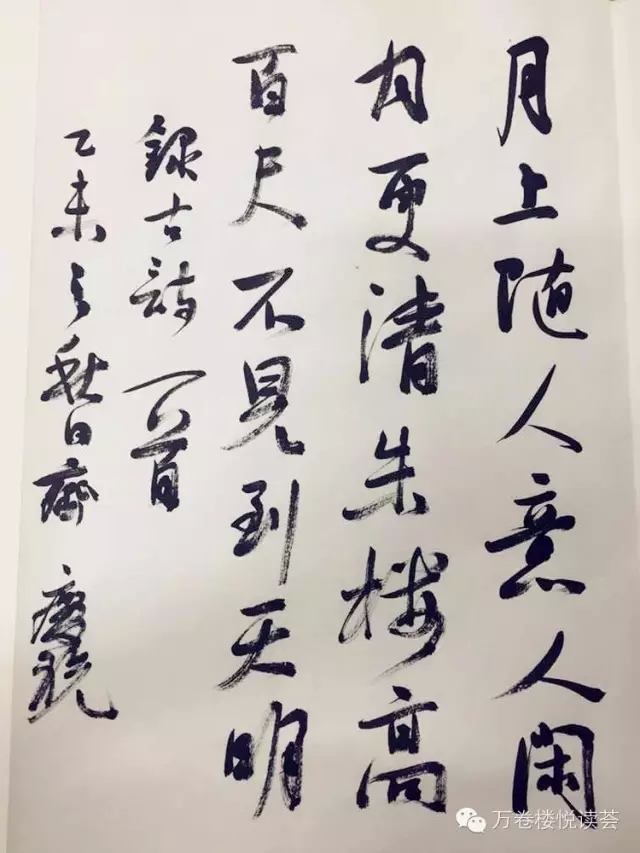 月上随人意人闲
月更清朱楼高
百尺不见到天明
録古詩一首
乙未之秋日齋
万卷楼悦读荟